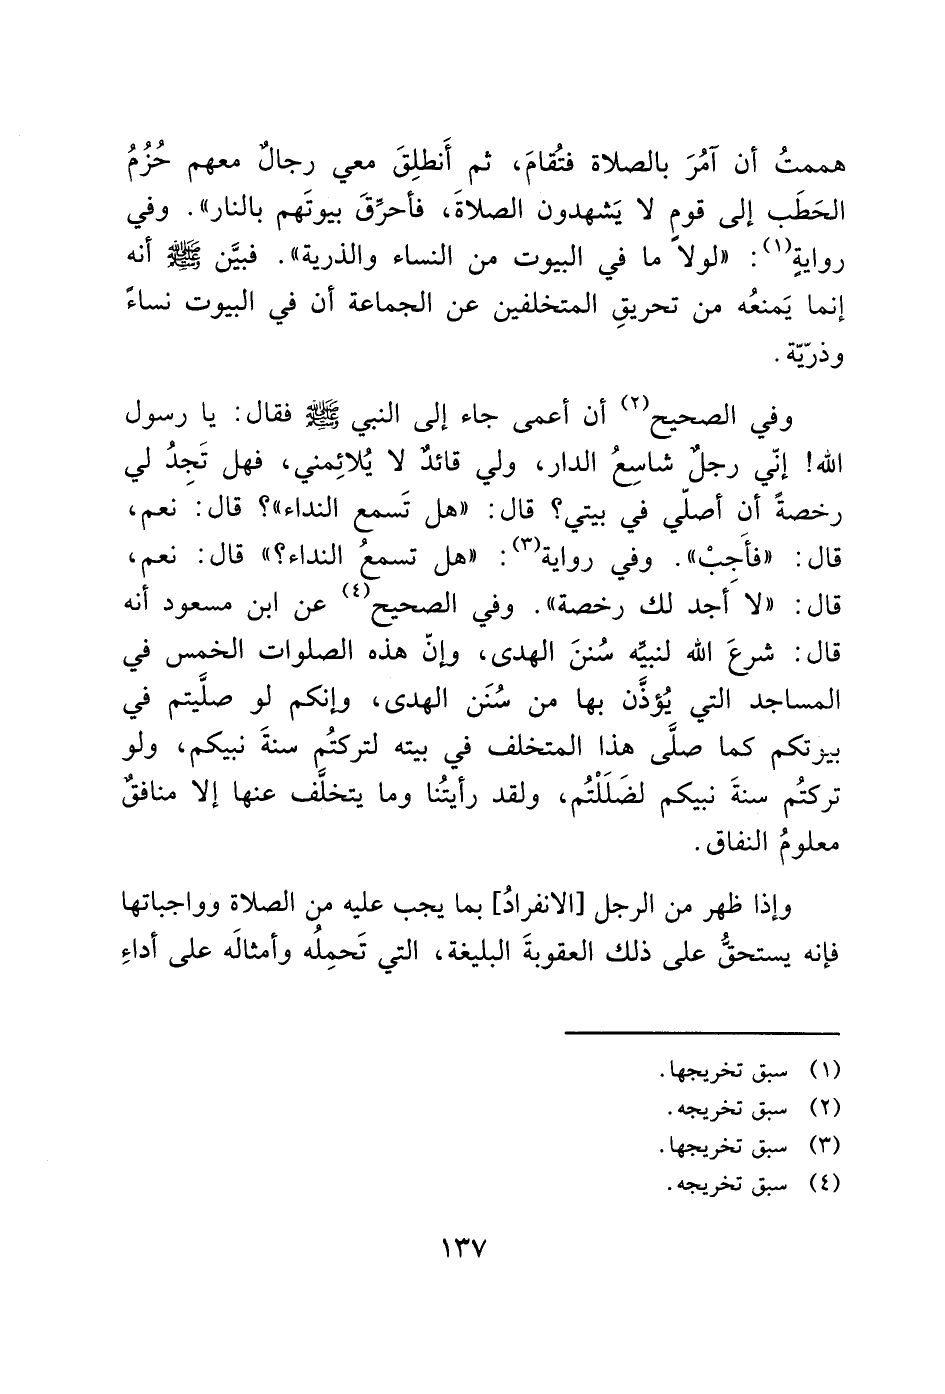 هممتُ أن آمُرَ بالصلاة فتُقامَ، ثم أَنطلِقَ معي رجالٌ معهم حُزُمُ
الحَطَب إلى قومٍ لا يَشهدون الصلاةَ، فأحرِّقَ بيوتَهم بالنار». وفي
روايةٍ(١): «لولا ما في البيوت من النساء والذرية». فبيَّن ﷺ أنه
إنما يَمنعُه من تحريقِ المتخلفين عن الجماعة أن في البيوت نساءً
وذرّيّة.
وفي الصحيح(٢) أن أعمى جاء إلى النبي ﷺ فقال: يا رسول
الله! إنّي رجلٌ شاسِعُ الدار، ولي قائدٌ لا يُلائِمني، فهل تَجِدُ لي
رخصةً أن أصلّي في بيتي؟ قال: «هل تَسمع النداء»؟ قال: نعم،
قال: «فأَجِبْ». وفي رواية(٣): «هل تسمعُ النداء؟» قال: نعم،
قال: «لا أَجِد لك رخصة». وفي الصحيح(٤) عن ابن مسعود أنه
قال: شرعَ الله لنبيِّه سُننَ الهدى، وإنّ هذه الصلوات الخمس في
المساجد التي يُؤذَّن بها من سُنَن الهدى، وإنكم لو صلَّيتم في
بيوتكم كما صلَّى هذا المتخلف في بيته لتركتُم سنةَ نبيكم، ولو
تركتُم سنةَ نبيكم لضَلَلْتُم، ولقد رأيتُنا وما يتخلَّف عنها إلا منافقٌ
معلومُ النفاق.
وإذا ظهر من الرجل [الانفرادُ] بما يجب عليه من الصلاة وواجباتها
فإنه يستحقُّ على ذلك العقوبةَ البليغة، التي تَحمِلُه وأمثالَه على أداءِ
(١) سبق تخريجها.
(٢) سبق تخريجه.
(٣) سبق تخريجها.
(٤) سبق تخريجه.
١٣٧